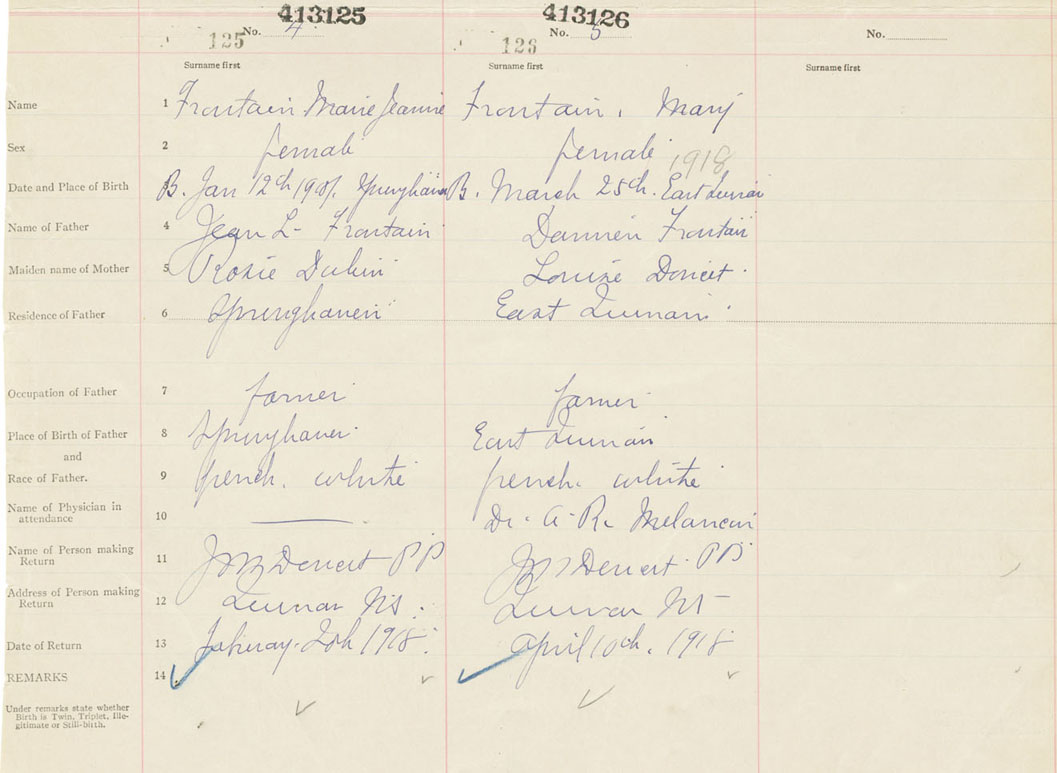 413125 413126
125 No. 4 126 No. 5 No.
Surname first Surname first Surname first
Name 1 Frontain Marie Jeanne Frontain. Mary
Sex 2 female female 1918
Date and Place of Birth B. Jan 12th B. March 25th. East
Name of Father 4 Jean L- Frontain Damien Frontain
Maiden name of Mother 5 Rosie Louise Doucet.
Residence of Father 6 Springhaven East
Occupation of Father 7 farmer farmer
Place of Birth of Father 8 Springhaven East
and
Race of Father. 9 french. white french. white
Name of Physician in
attendance 10 Dr. A. R. Melancon
Name of Person making
Return 11 PP PP
Address of Person making
Return 12 NS. NS
Date of Return 13 1918. April 10th. 1918
REMARKS 14
Under remarks state whether
Birth is Twin, Triplet, Ille-
gitimate or Still-birth.